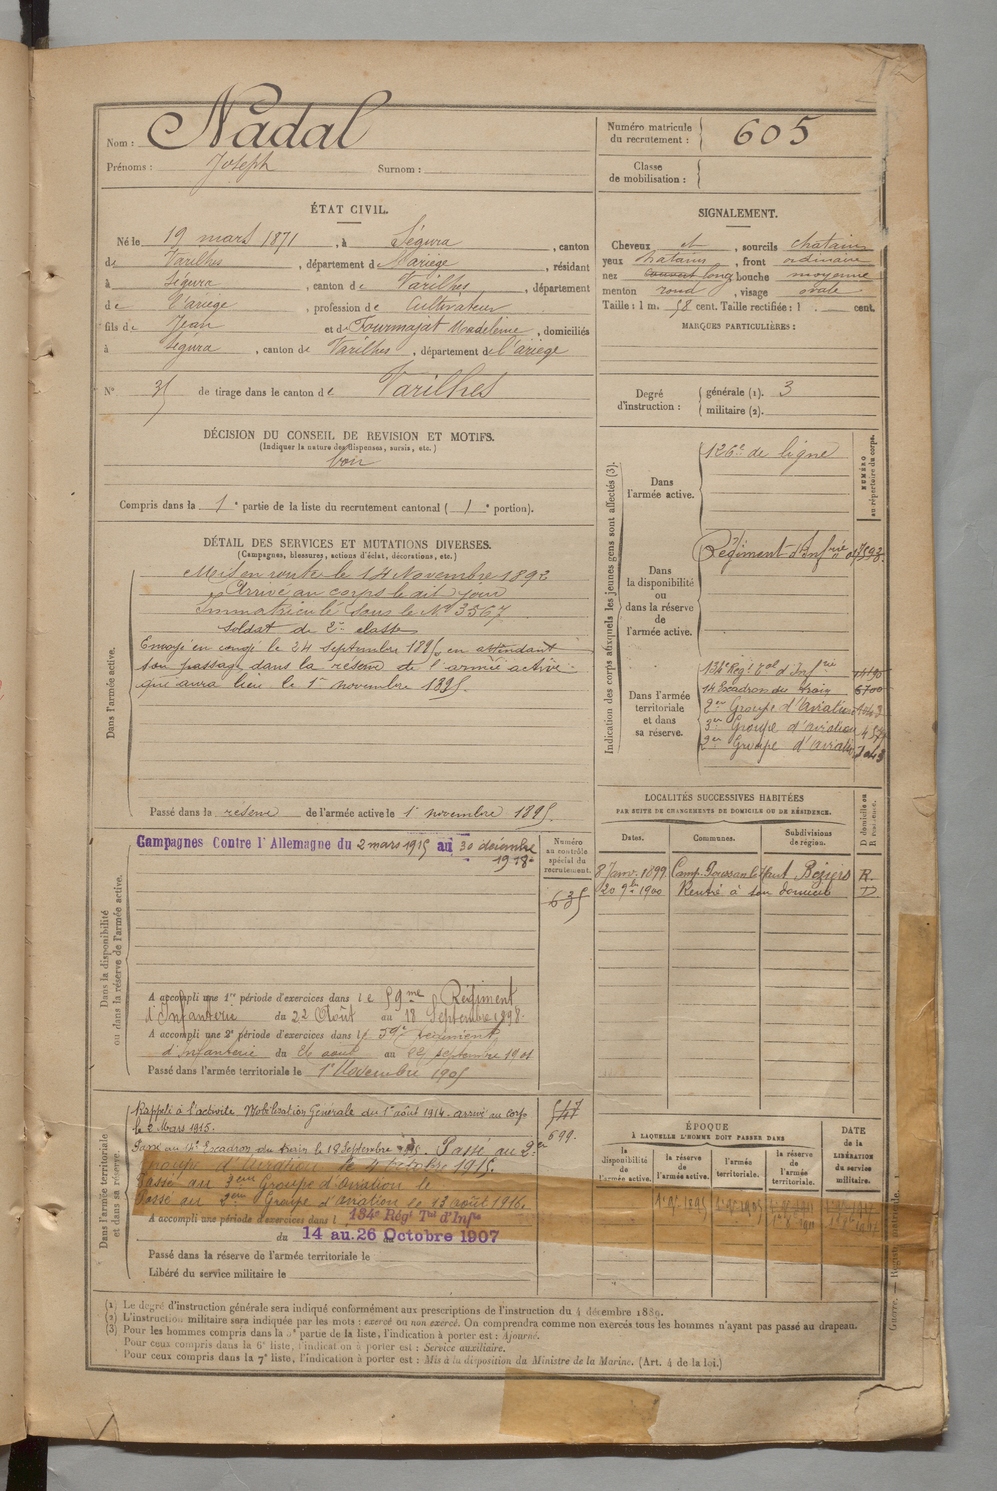 Nom : Nadal
Prénoms : Joseph Surnom :
Numéro matricule du recrutement : 605
Classe de mobilisation :
ÉTAT CIVIL.
Né le 19 mars 1871, à Ségura, canton
de Varilhes, département de l'Ariège, résidant
à Ségura, canton de Varilhes, département
de l'Ariege, profession de Cultivateur
fils de Jean et de Fourmajat Madeleine, domiciliés
à Ségura, canton de Varilhes, département de l'ariège
N° 35 de tirage dans le canton de Varilhes
SIGNALEMENT.
Cheveux et, sourcils chatains
yeux chatains, front ordinaire
nez long bouche moyenne
menton rond, visage ovale
Taille : 1 m. 58 cent. Taille rectifiée : 1 . — cent.
MARQUES PARTICULIÈRES :
Degré d'instruction : générale (1). 3
militaire (2).
DÉCISION DU CONSEIL DE REVISION ET MOTIFS.
(Indiquer la nature des dispenses, sursis, etc.)
bon
Compris dans la 1e partie de la liste du recrutement cantonal ( 1e portion).
DÉTAIL DES SERVICES ET MUTATIONS DIVERSES.
(Campagnes, blessures, actions d'éclat, décorations, etc.)
Dans l'armée active.
Mis en route le 14 Novembre 1892
Arrivé au corps le dit jour
Immatriculé sous le N° 3567
soldat de 2e classe
Envoyé en congé le 24 septembre 1895, en attendant
son passage dans la réserve de l'armée active
qui aura lieu le 1er novembre 1895.
Passé dans la reserve de l'armée active le 1er novembre 1895.
Indication des corps auxquels les jeunes gens sont affectés (3).
NUMÉRO au répertoire du corps.
Dans l'armée active.
126e de ligne
Dans la disponibilité ou dans la réserve de l'armée active.
Régiment d'Infrie
Dans l'armée territoriale et dans sa réserve.
134e Régt Tal d'Infrie
14 Escadron du train 6700
2er Groupe d'Aviation
3er Groupe d'aviation
2er Groupe d'aviation
LOCALITÉS SUCCESSIVES HABITÉES
PAR SUITE DE CHANGEMENTS DE DOMICILE OU DE RÉSIDENCE.
Dates. Communes. Subdivisions de région. D domicile ou R résidence.
8 Janv. 1899 Béziers R.
20 9bre 1900 Rentré à son domicile D
Dans la disponibilité ou dans la réserve de l'armée active.
Campagnes Contre l'Allemagne du 2 mars 1915 au 30 décembre
1918
Numéro au contrôle spécial du recrutement.
635
A accompli une 1re période d'exercices dans le 59me Régiment
d'Infanterie du 22 Août au 18 Septembre 1898
A accompli une 2e période d'exercices dans le 59e régiment
d'Infanterie du 26 août au 22 septembre 1901
Passé dans l'armée territoriale le 1er Novembre 1905
Dans l'armée territoriale et dans sa réserve.
Rappelé à l'activité. Mobilisation Générale du 1er août 1914. arrivé au corps
le 2 Mars 1915.
547
699.
Passé au 14e Escadron du train le 19 Septembre 1915. Passé au 2er
Groupe d'Aviation le 4 octobre 1915.
Passé au 3eme Groupe d'aviation le
Passé au 2eme Groupe d'aviation le 13 août 1916.
A accompli une période d'exercices dans l 134e Régt Tal d'Infie
du 14 au 26 Octobre 1907
Passé dans la réserve de l'armée territoriale le
Libéré du service militaire le
ÉPOQUE
À LAQUELLE L'HOMME DOIT PASSER DANS
la disponibilité de l'armée active.
la réserve de l'armée active.
l'armée territoriale.
la réserve de l'armée territoriale.
DATE de la LIBÉRATION du service militaire.
(1) Le degré d'instruction générale sera indiqué conformément aux prescriptions de l'instruction du 4 décembre 1889.
(2) L'instruction militaire sera indiquée par les mots : exercé ou non exercé. On comprendra comme non exercés tous les hommes n'ayant pas passé au drapeau.
(3) Pour les hommes compris dans la 5e partie de la liste, l'indication à porter est : Ajourné.
Pour ceux compris dans la 6e liste, l'indication à porter est : Service auxiliaire.
Pour ceux compris dans la 7e liste, l'indication à porter est : Mis à la disposition du Ministre de la Marine. (Art. 4 de la loi.)